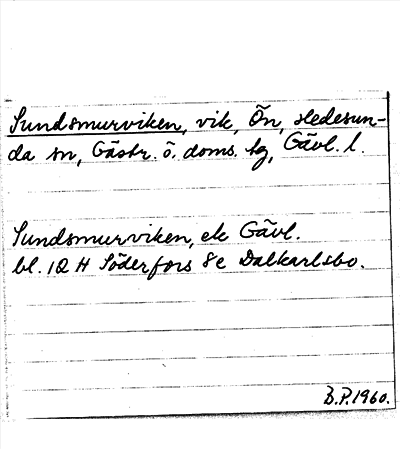 Sundsmurviken, vik, Ön, Hedesun-
da sn, Gästr. ö. doms. tg, Gävl. l.
Sundsmurviken, ek Gävl.
bl. 12 H Söderfors 8 c Dalkarlsbo.
B.P. 1960.